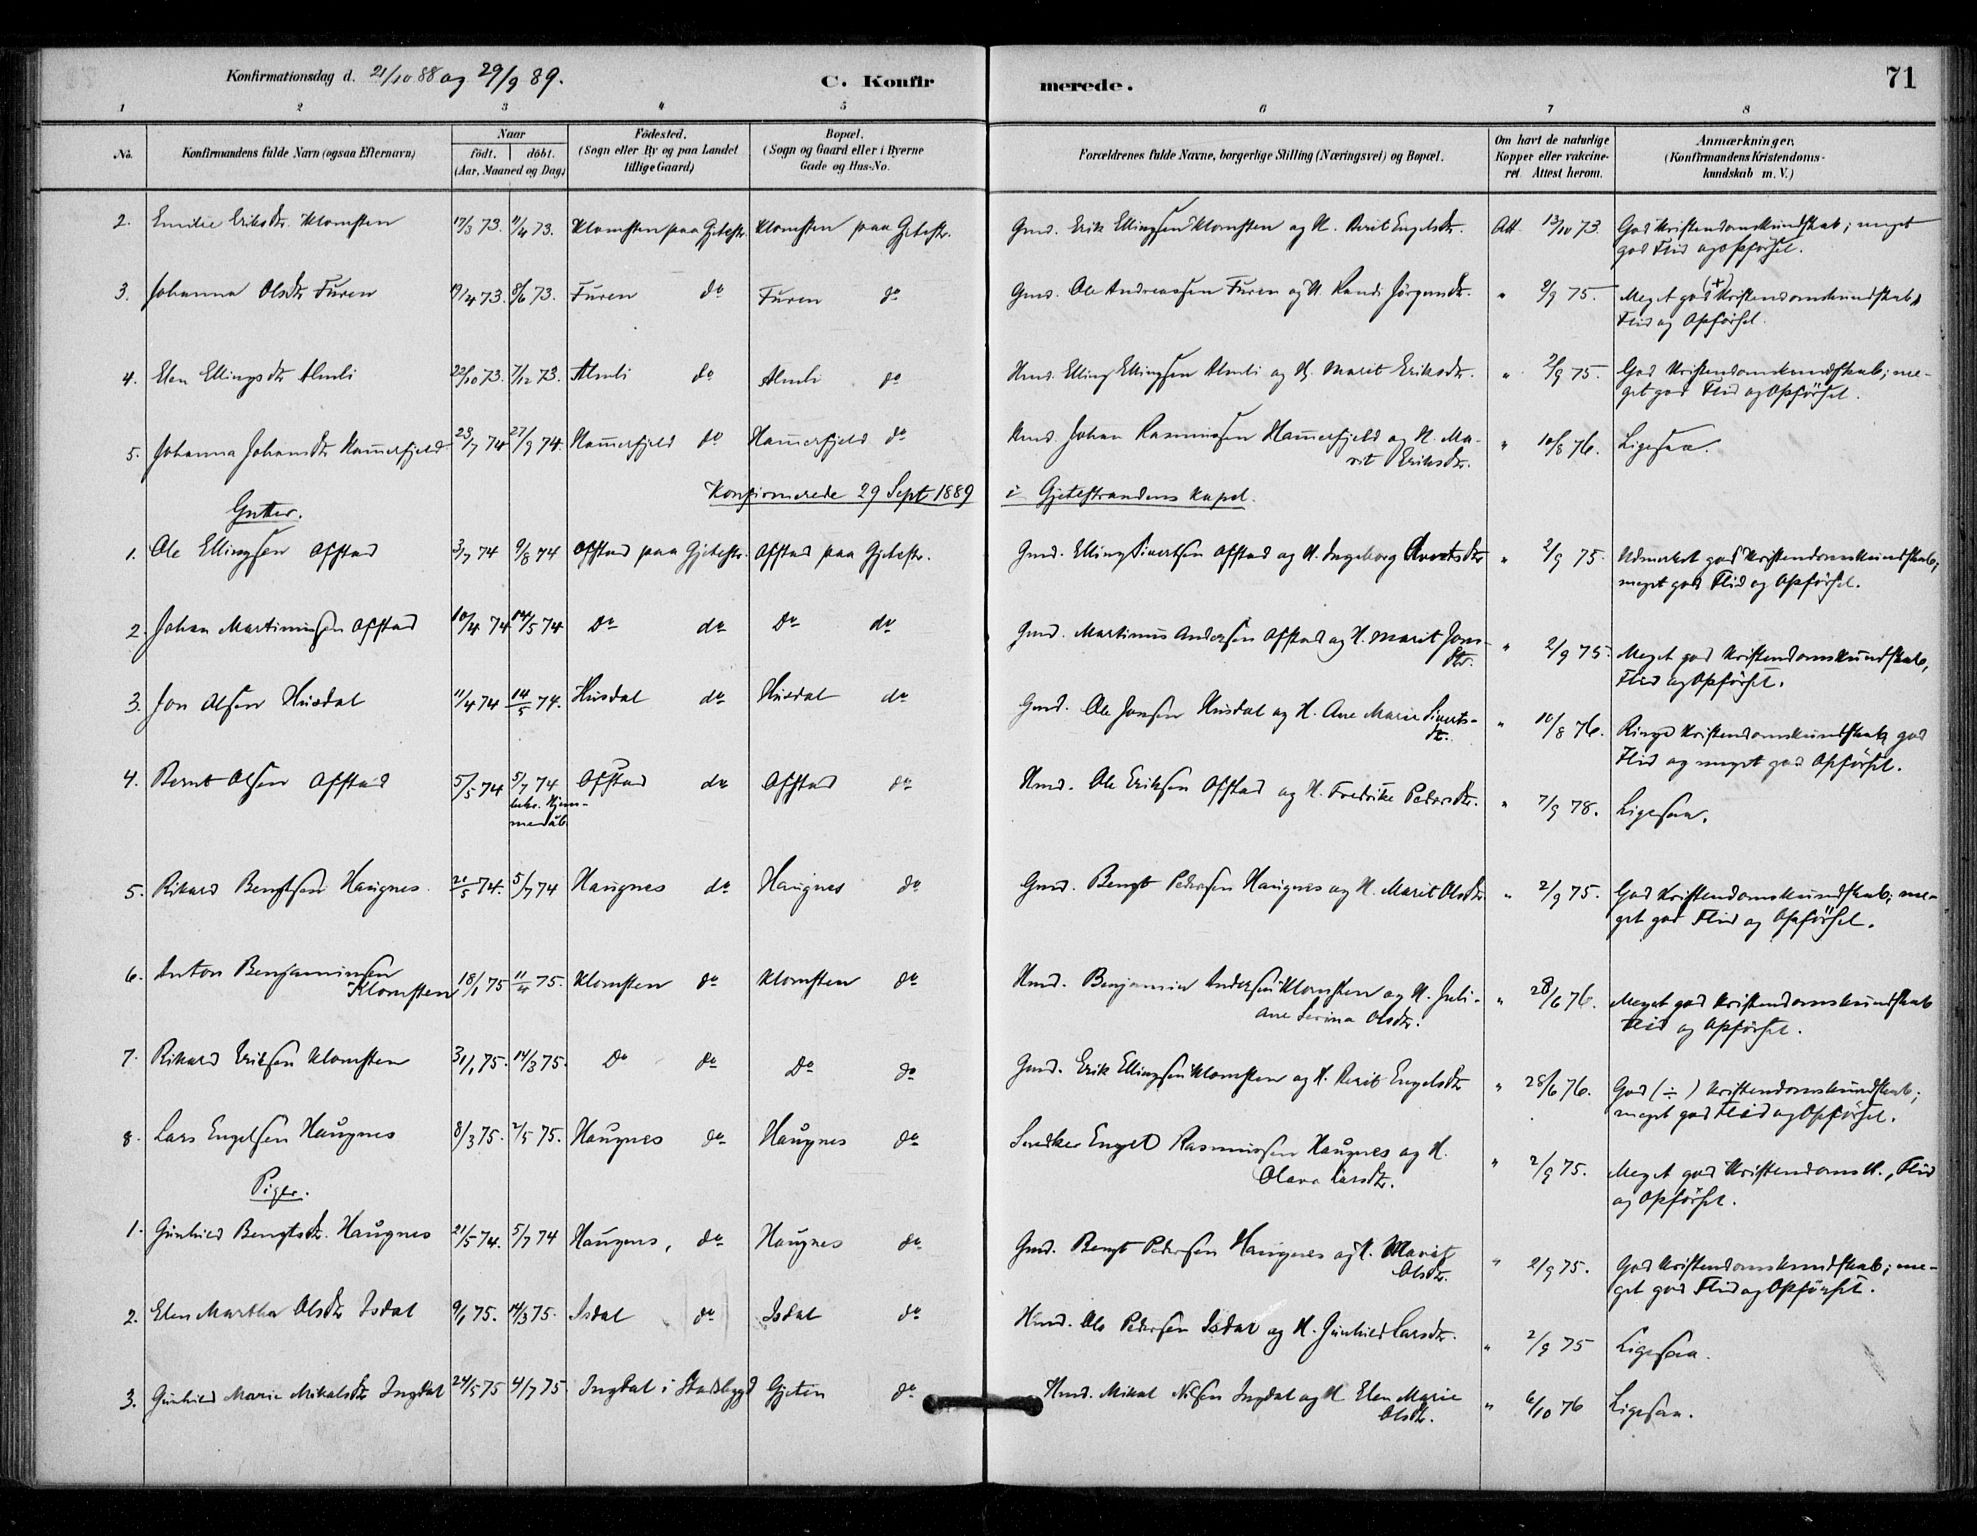 Konfirmationsdag d. 21/10 88 og 29/9 89.
C. Konfir
merede.
71
1 2 3 4 5 6 7 8
No.
Konfirmandens fulde Navn (ogsaa Efternavn)
Naar
födt. döbt.
(Aar, Maaned og Dag)
Födested.
(Sogn eller By og paa Landet
tillige Gaard)
Bopæl.
(Sogn og Gaard eller i Byerne
Gade og Hus-No.
Forældrenes fulde Navne, borgerlige Stilling (Næringsvei) og Bopæl.
Om havt de naturlige
Kopper eller vakcine-
ret. Attest herom.
Anmærkninger.
(Konfirmandens Kristendoms-
kundskab m. V.)
2. Emilie Eriksdtr. Klomsten 17/3 73. 11/4 73. Klomsten paa Gjetestr. Klomsten paa Gjetestr. Gmd. Erik Ellingsen Klomsten og H. Berit Engelsdtr. Att. 13/10 73. God Kristendomskundskab; meget
god Flid og Opförsel.
3. Johanna Olsdtr Furen 19/4 73. 8/6 73. Furen do Furen do Gmd. Ole Andreassen Furen og H. Randi Jörgensdtr. " 2/9 75. Meget god (+) Kristendomskundskab,
Flid og Opförsel.
4. Elen Ellingsdtr Almli 22/10 73. 7/12 73. Almli do Almli do Hmd. Elling Ellingsen Almli og H. Marit Eriksdtr. " 2/9 75. God Kristendomskundskab; me-
get god Flid og Opförsel.
5. Johanna Johansdtr Hamerfjeld 23/7 74 27/9 74. Hamerfjeld do Hamerfjeld do Hmd. Johan Rasmussen Hamerfjeld og H. Ma-
rit Eriksdtr. " 10/8 76. Ligesaa.
Konfirmerede 29 Sept 1889 i Gjetestrandens Kapel.
Gutter.
1. Ole Ellingsen Ofstad 3/7 74 9/8 74 Ofstad paa Gjetestr. Ofstad paa Gjetestr. Gmd. Elling Sivertsen Ofstad og H. Ingeborg Arntsdtr " 2/9 75. Udmerket god Kristendomskundskab;
meget god Flid og Opförsel.
2. Johan Martinussen Ofstad 10/4 74 14/5 74 Do do Do do Gmd. Martinus Andersen Ofstad og H. Marit Jons-
dtr. " 2/9 75. Meget god Kristendomskundskab,
Flid og Opförsel.
3. Jon Olsen Husdal 11/4 74 14/5 74. Husdal do Husdal do Gmd. Ole Jonsen Husdal og H. Ane Marie Siverts-
dtr. " 10/8 76. Ringe Kristendomskundskab, god
Flid og meget god Opförsel.
4. Bernt Olsen Ofstad 5/5 74 5/7 74 Ofstad do Ofstad do Hmd. Ole Eriksen Ofstad og H. Fredrike Pedersdtr. " 7/9 78. Ligesaa.
5. Rikard Bengtsen Haugnes 21/5 74. 5/7 74 Haugnes do Haugnes do Gmd. Bengt Pedersen Haugnes og H. Marit Olsdtr. " 2/9 75. God Kristendomskundskab; me-
get god Flid og Opförsel.
6. Anton Benjaminsen
Klomsten 18/1 75 11/4 75. Klomsten do Klomsten do Hmd. Benjamin Andersen Klomsten og H. Juli-
ane Serina Olsdtr. " 28/6 76. Meget god Kristendomskundskab
Flid og Opförsel.
7. Rikard Eriksen Klomsten 31/1 75. 14/3 75. Do do Do do Gmd. Erik Ellingsen Klomsten og H. Berit Engelsdtr " 28/6 76. God (÷) Kristendomskundskab;
meget god Flid og Opförsel.
8. Lars Engelsen Haugnes 8/3 75. 2/5 75. Haugnes do Haugnes do Snedker Engel Rasmussen Haugnes og H.
Olava Larsdtr. " 2/9 75. Meget god Kristendomsk., Flid
og Opförsel.
Piger.
1. Gunhild Bengtsdtr. Haugnes 21/5 74. 5/7 74 Haugnes, do Haugnes do Gmd. Bengt Pedersen Haugnes og H. Marit
Olsdtr. " 2/9 75. God Kristendomskundskab; me-
get god Flid og Opförsel.
2. Elen Martha Olsdtr Isdal 9/1 75. 14/3 75. Isdal do Isdal do Hmd. Ole Pedersen Isdal og H. Gunhild Larsdtr. " 2/9 75 Ligesaa.
3. Gunhild Marie Mikalsdtr Ingdal 24/5 75 4/7 75 Ingdal i Stadsbygd Gjeten do Hmd. Mikal Nilsen Ingdal og H. Elen Marie
Olsdtr. " 6/10 76 Ligesaa.